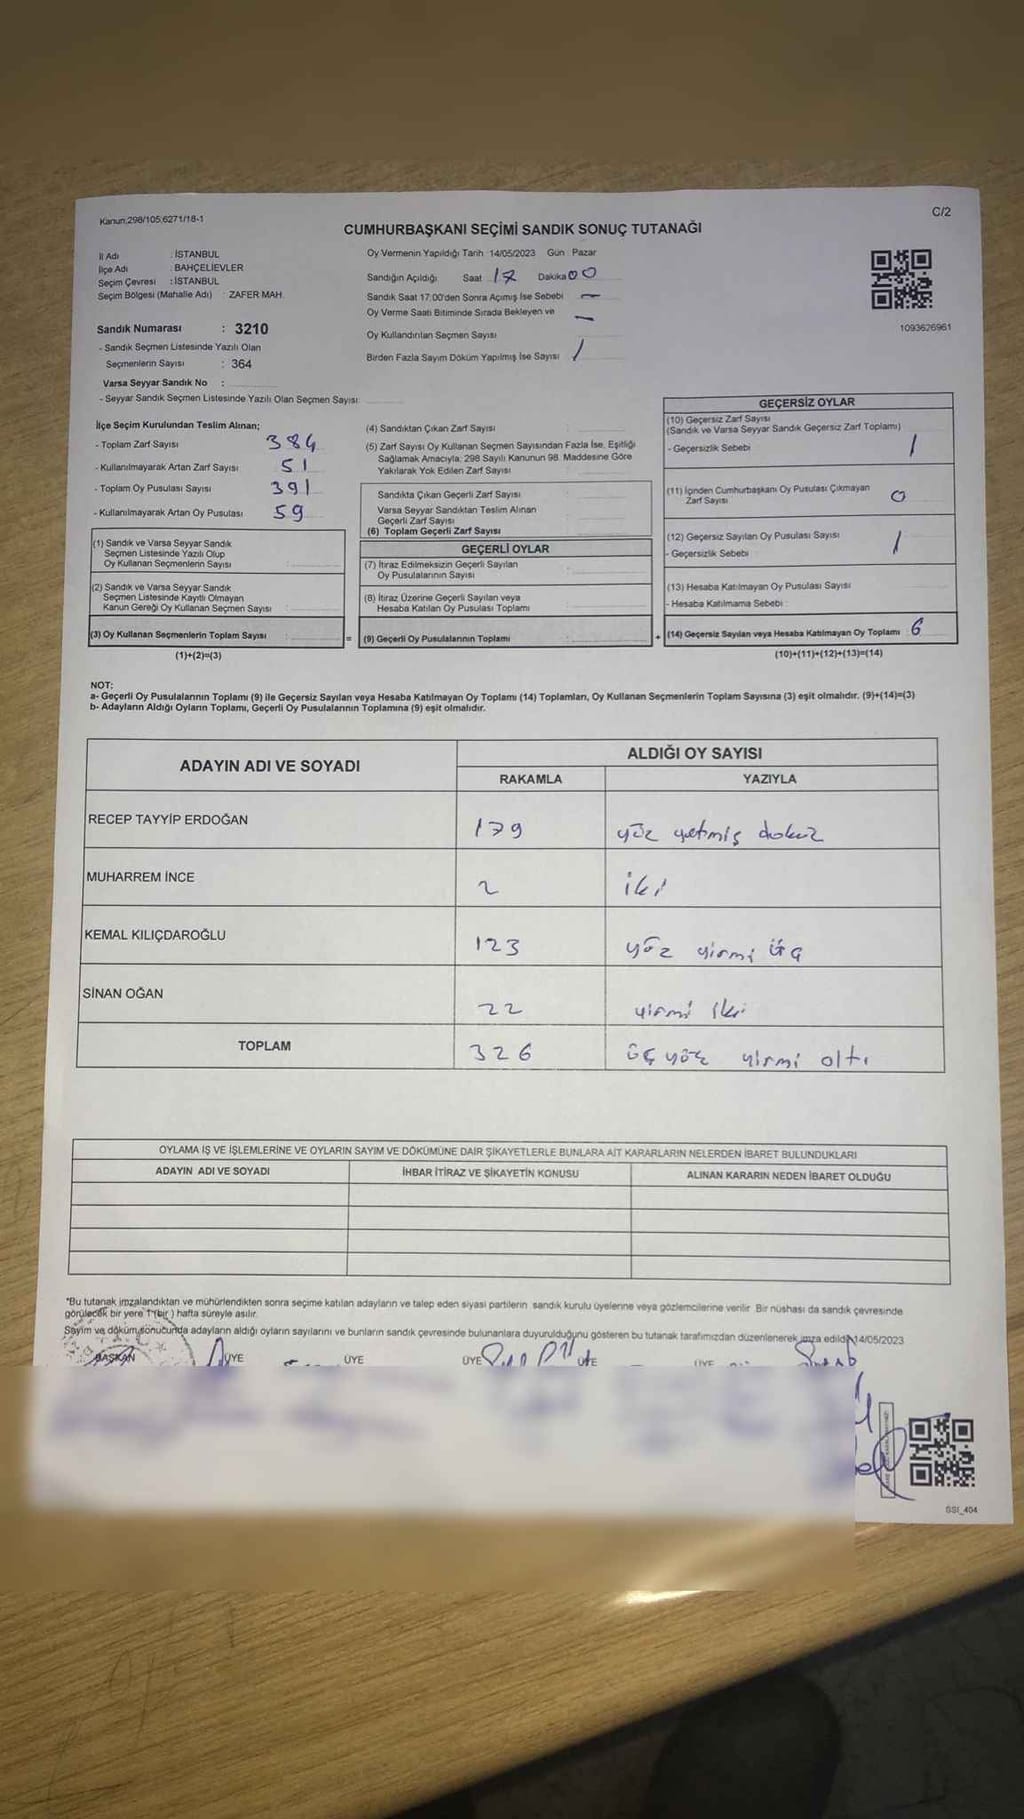 Kanun;298/105;6271/18-1
C/2
CUMHURBAŞKANI SEÇİMİ SANDIK SONUÇ TUTANAĞI
İl Adı : İSTANBUL
İlçe Adı : BAHÇELİEVLER
Seçim Çevresi : İSTANBUL
Seçim Bölgesi (Mahalle Adı) : ZAFER MAH.
Sandık Numarası : 3210
- Sandık Seçmen Listesinde Yazılı Olan
Seçmenlerin Sayısı : 364
Varsa Seyyar Sandık No :
- Seyyar Sandık Seçmen Listesinde Yazılı Olan Seçmen Sayısı:
Oy Vermenin Yapıldığı Tarih 14/05/2023 Gün : Pazar
Sandığın Açıldığı Saat 17 Dakika 00
Sandık Saat 17:00'den Sonra Açımış İse Sebebi –
Oy Verme Saati Bitiminde Sırada Bekleyen ve –
Oy Kullandırılan Seçmen Sayısı
Birden Fazla Sayım Döküm Yapılmış İse Sayısı /
1093626961
İlçe Seçim Kurulundan Teslim Alınan;
- Toplam Zarf Sayısı 384
- Kullanılmayarak Artan Zarf Sayısı 51
- Toplam Oy Pusulası Sayısı 391
- Kullanılmayarak Artan Oy Pusulası 59
(1) Sandık ve Varsa Seyyar Sandık
Seçmen Listesinde Yazılı Olup
Oy Kullanan Seçmenlerin Sayısı :
(2) Sandık ve Varsa Seyyar Sandık
Seçmen Listesinde Kayıtlı Olmayan
Kanun Gereği Oy Kullanan Seçmen Sayısı :
(3) Oy Kullanan Seçmenlerin Toplam Sayısı :
(1)+(2)=(3)
(4) Sandıktan Çıkan Zarf Sayısı :
(5) Zarf Sayısı Oy Kullanan Seçmen Sayısından Fazla İse, Eşitliği
Sağlamak Amacıyla; 298 Sayılı Kanunun 98. Maddesine Göre
Yakılarak Yok Edilen Zarf Sayısı :
Sandıkta Çıkan Geçerli Zarf Sayısı
Varsa Seyyar Sandıktan Teslim Alınan
Geçerli Zarf Sayısı
(6) Toplam Geçerli Zarf Sayısı
GEÇERLİ OYLAR
(7) İtiraz Edilmeksizin Geçerli Sayılan
Oy Pusulalarının Sayısı
(8) İtiraz Üzerine Geçerli Sayılan veya
Hesaba Katılan Oy Pusulası Toplamı
= (9) Geçerli Oy Pusulalarının Toplamı
GEÇERSİZ OYLAR
(10) Geçersiz Zarf Sayısı
(Sandık ve Varsa Seyyar Sandık Geçersiz Zarf Toplamı)
- Geçersizlik Sebebi 1
(11) İçinden Cumhurbaşkanı Oy Pusulası Çıkmayan
Zarf Sayısı 0
(12) Geçersiz Sayılan Oy Pusulası Sayısı 1
- Geçersizlik Sebebi :
(13) Hesaba Katılmayan Oy Pusulası Sayısı
- Hesaba Katılmama Sebebi :
+ (14) Geçersiz Sayılan veya Hesaba Katılmayan Oy Toplamı 6
(10)+(11)+(12)+(13)=(14)
NOT:
a- Geçerli Oy Pusulalarının Toplamı (9) ile Geçersiz Sayılan veya Hesaba Katılmayan Oy Toplamı (14) Toplamları, Oy Kullanan Seçmenlerin Toplam Sayısına (3) eşit olmalıdır. (9)+(14)=(3)
b- Adayların Aldığı Oyların Toplamı, Geçerli Oy Pusulalarının Toplamına (9) eşit olmalıdır.
ADAYIN ADI VE SOYADI
ALDIĞI OY SAYISI
RAKAMLA YAZIYLA
RECEP TAYYİP ERDOĞAN 179 yüz yetmiş dokuz
MUHARREM İNCE 2 iki
KEMAL KILIÇDAROĞLU 123 yüz yirmi üç
SİNAN OĞAN 22 yirmi iki
TOPLAM 326 üç yüz yirmi altı
OYLAMA İŞ VE İŞLEMLERİNE VE OYLARIN SAYIM VE DÖKÜMÜNE DAİR ŞİKAYETLERLE BUNLARA AİT KARARLARIN NELERDEN İBARET BULUNDUKLARI
ADAYIN ADI VE SOYADI İHBAR İTİRAZ VE ŞİKAYETİN KONUSU ALINAN KARARIN NEDEN İBARET OLDUĞU
*Bu tutanak imzalandıktan ve mühürlendikten sonra seçime katılan adayların ve talep eden siyasi partilerin sandık kurulu üyelerine veya gözlemcilerine verilir. Bir nüshası da sandık çevresinde
görülecek bir yere 1 (bir) hafta süreyle asılır.
Sayım ve döküm sonucunda adayların aldığı oyların sayılarını ve bunların sandık çevresinde bulunanlara duyurulduğunu gösteren bu tutanak tarafımızdan düzenlenerek imza edildi. 14/05/2023
BAŞKAN ÜYE ÜYE ÜYE ÜYE ÜYE
SSI_404